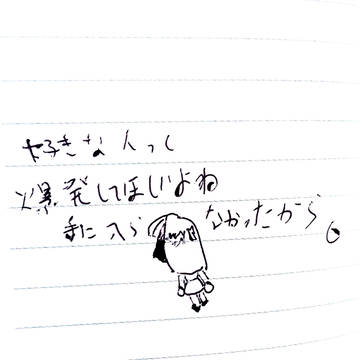 好きな人って
爆発してほしいよね
手に入らなかったから。